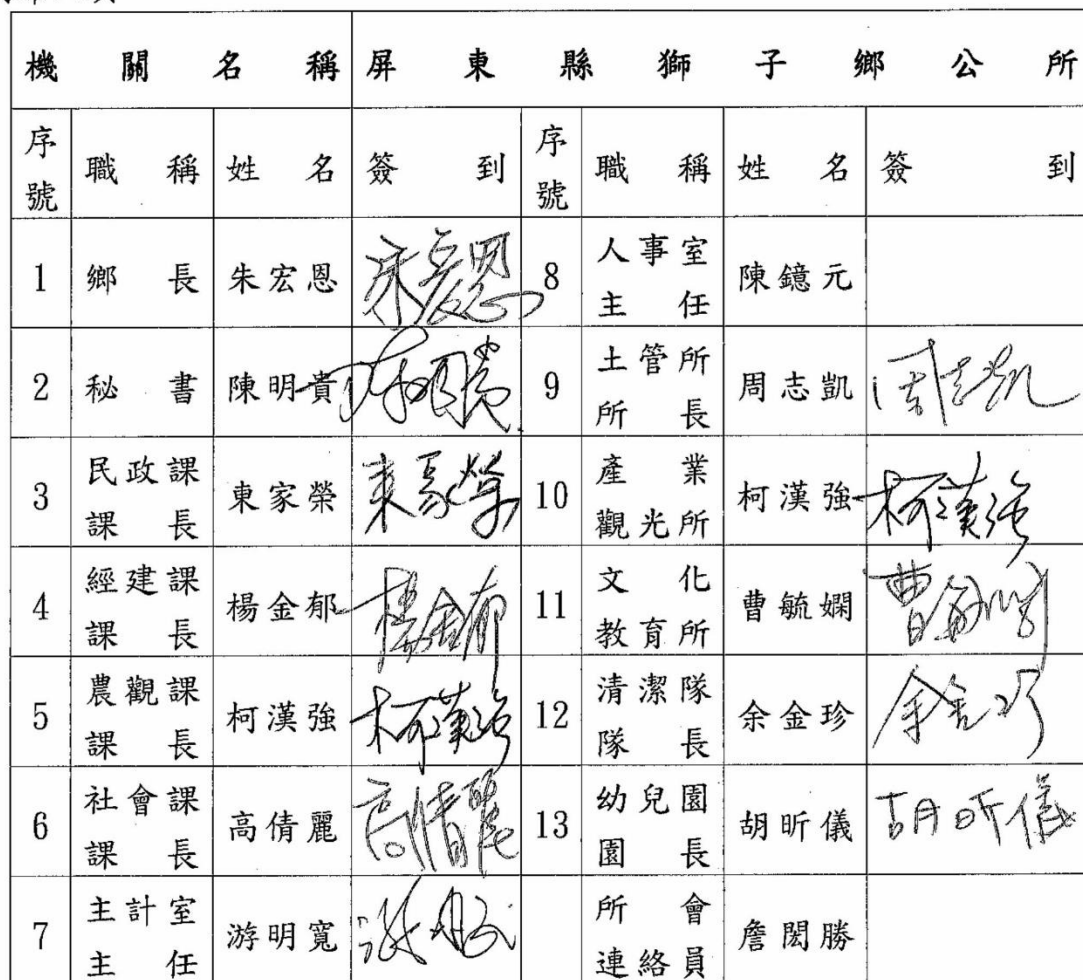 機關名稱 屏東縣獅子鄉公所
序號 職稱 姓名 簽到 序號 職稱 姓名 簽到
1 鄉長 朱宏恩 朱宏恩 8 人事室主任 陳鐿元
2 秘書 陳明貴 陳明貴 9 土管所所長 周志凱 周志凱
3 民政課課長 東家榮 東家榮 10 產業觀光所 柯漢強 柯漢強
4 經建課課長 楊金郁 楊金郁 11 文化教育所 曹毓嫻
5 農觀課課長 柯漢強 柯漢強 12 清潔隊隊長 余金珍 余金珍
6 社會課課長 高倩麗 高倩麗 13 幼兒園園長 胡昕儀 胡昕儀
7 主計室主任 游明寬 所會連絡員 詹閎勝